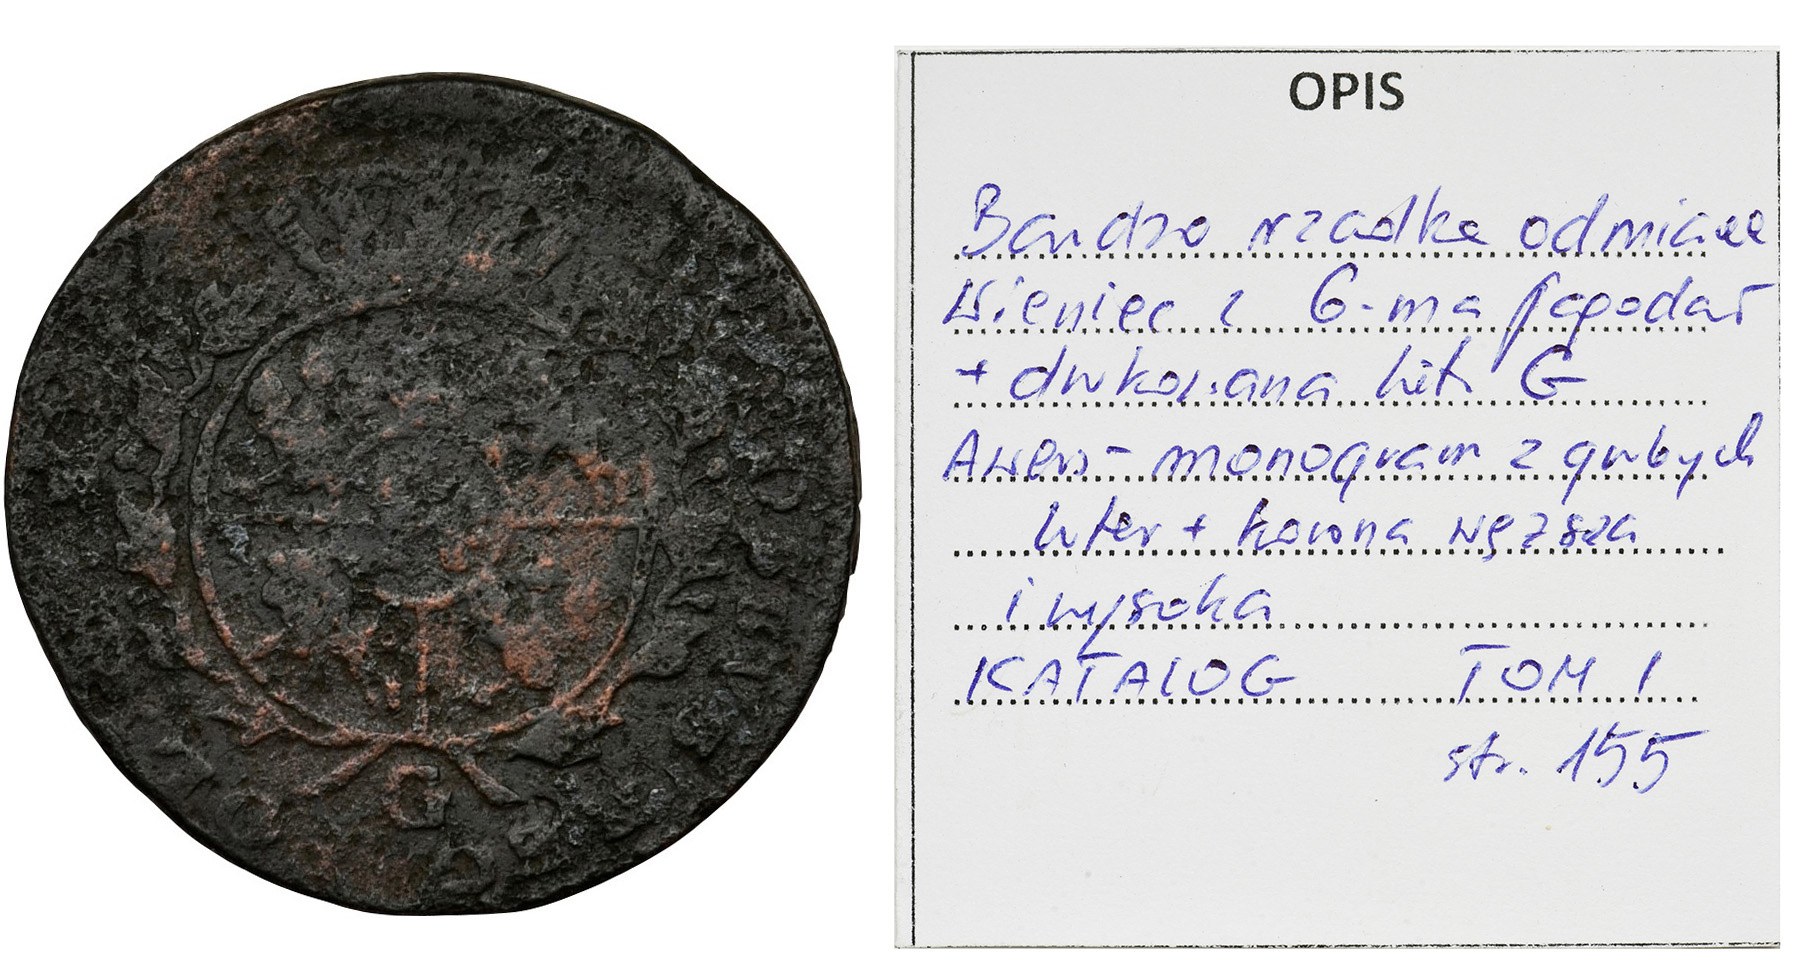 G
OPIS
Bardzo rzadka odmiana
Wieniec z 6-ma jagodami
+ drukowana lit. G
Awers - monogram z grubych
liter + korona węższa
i wysoka
KATALOG TOM I
str. 155